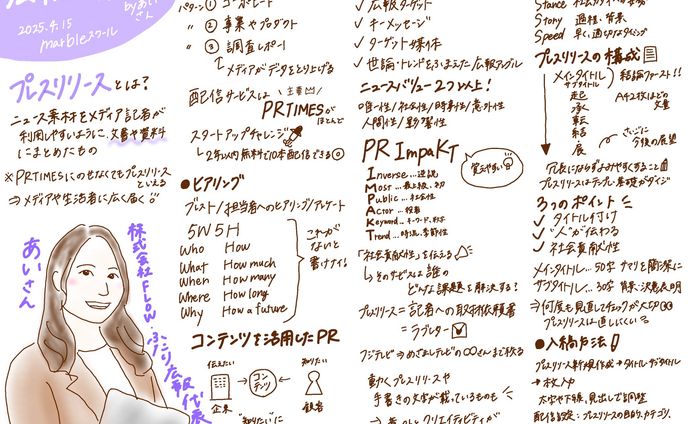 2025.4.15
marbleスクール
byあい
さん
プレスリリースとは?
ニュース素材をメディア記者が
利用しやすいように、文書や資料
にまとめたもの
※PRTIMESにのせなくてもプレスリリース
といえる
⇒メディアや生活者に広く届く!!
あいさん
株式会社FLOW
広報代表
パターン ① コーポレート
〃 ② 事業やプロダクト
〃 ③ 調査レポート
↑メディアがデータをとり上げる
配信サービスは
主要
PRTIMESが
ほとんど
スタートアップチャレンジ
↳2年以内無料で10本配信できる◎
●ヒアリング
ブレスト/担当者へのヒアリング/アンケート
5W5H
Who How
What How much
When How many
Where How long
Why How a future
これが
ないと
書けナイ!
コンテンツを活用したPR
伝えたい
知りたい
コン
テンツ
企業
顧客
"知りたい"に
✓広報ターゲット
✓キーメッセージ
✓ターゲット媒体
✓世論・トレンドをふまえた広報アングル
ニュースバリュー2つ以上!
◎唯一性/社会性/時事性/意外性
人間性/影響性
PR ImpaKT
覚えやすい
Inverse…逆説
Most…最上級、初
Public…社会性
Actor…役者
Keyword…キーワード、数字
Trend…時流、季節性
「社会貢献性」を伝える
↳そのサービスは誰の
どんな課題を解決する?
プレスリリース=記者への取材依頼書
=ラブレター
フジテレビ⇒めざましテレビの〇〇さんまで絞る
動くプレスリリースや
手書きの文字が載っているものも
クリエイティビティが
Story 過程・背景
Speed 早く、適切なタイミング
プレスリリースの構成
メインタイトル
サブタイトル
結論ファースト!!
起
承
転
結
展
A4 2枚ほどの
文量
さいごに
今後の展望
冗長にならずよみやすくすること
プレスリリースはテンプレ・基礎がダイジ
3つのポイント
✓タイトル付け
✓"人"が伝わる
✓社会貢献性
メインタイトル…50字 サマリを簡潔に
サブタイトル…30字 解、決意表明
⇒何度も見直しでチェックが大切
プレスリリースは直しにくい
●入稿方法!
プレスリリース新規作成→タイトル・サブタイトル
→本文入力
太字や下線、見出しで調整
配信設定:プレスリリースの目的、カテゴリ、